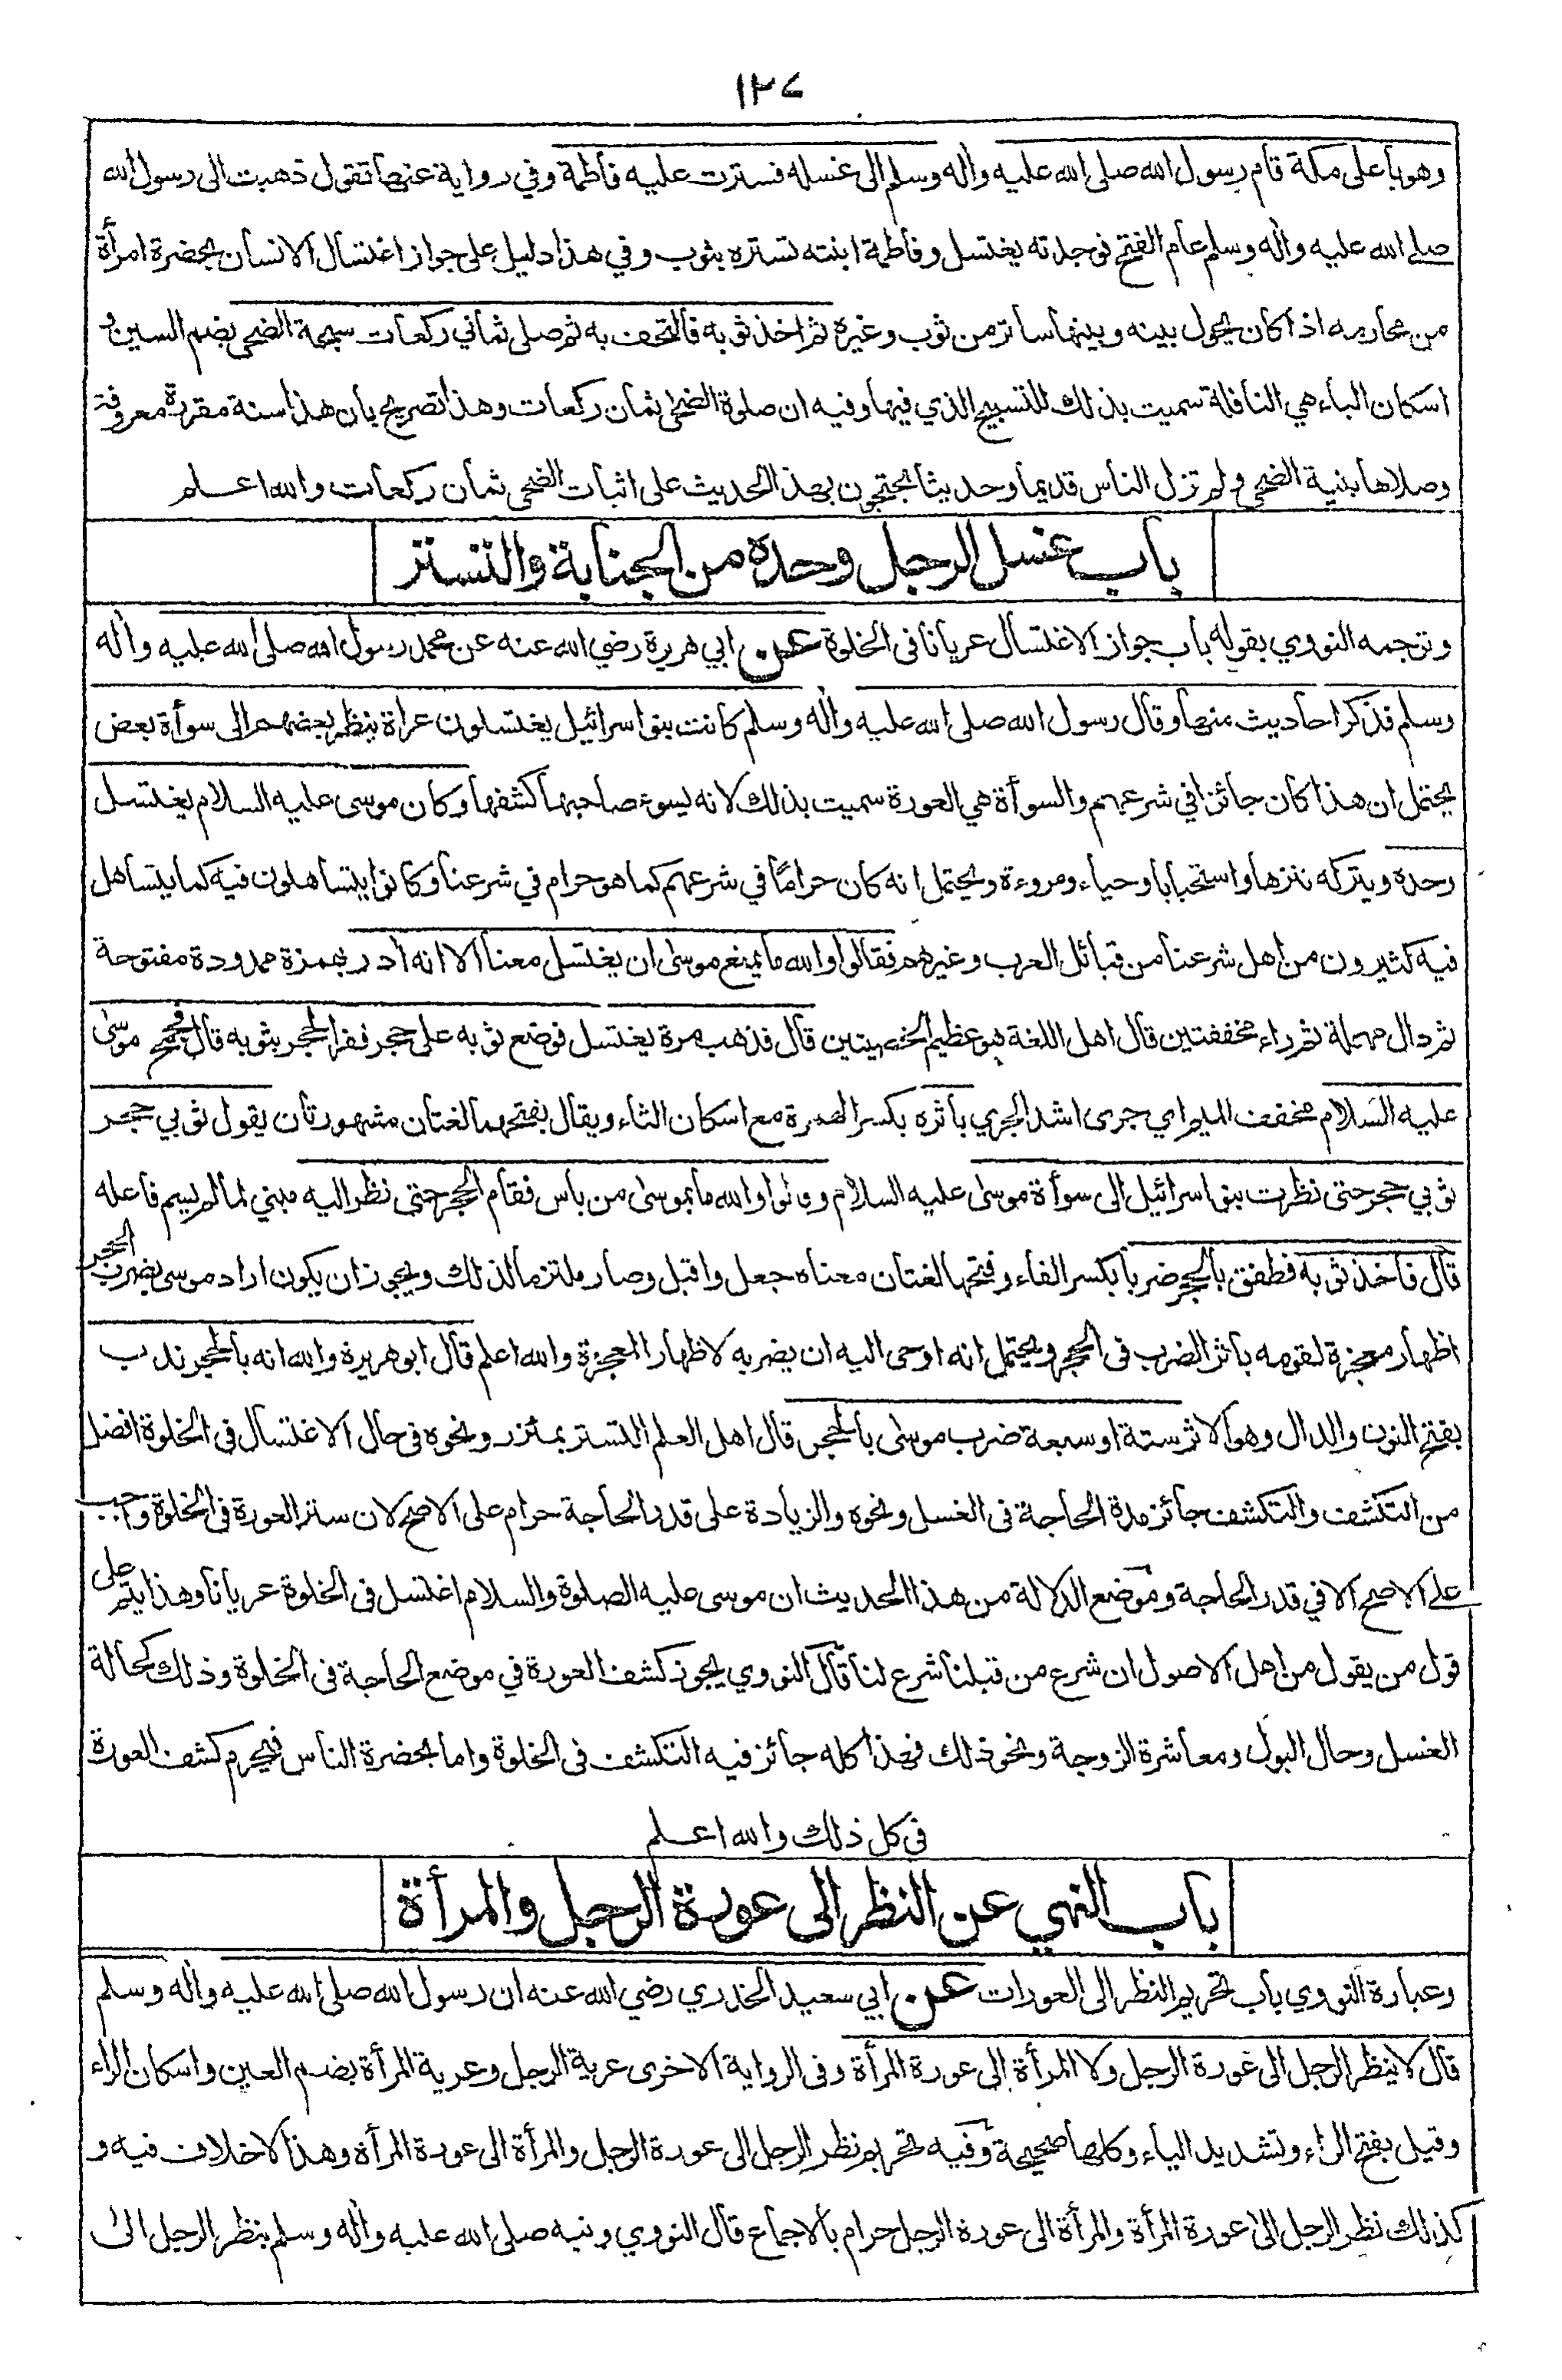 ١٢٧
وهو بأعلى مكة قام رسول الله صلى الله عليه واٰله وسلم الى غسله فسترت عليه فاطمة وفي رواية عنها تقول ذهبت الى رسول الله
صلى الله عليه واٰله وسلم عام الفتح فوجدته يغتسل وفاطمة ابنته تستره بثوب وفي هذا دليل على جواز اغتسال الانسان بحضرة امرأة
من محارمه اذا كان يحول بينه وبينها ساتر من ثوب وغيره ثم اخذ ثوبه فالتحف به ثم صلى ثماني ركعات سبحة الضحى بضم السين و
اسكان الباء هي النافلة سميت بذلك للتسبيح الذي فيها وفيه ان صلوة الضحى ثمان ركعات وهذا تصريح بان هذا سنة مقررة معروفة
وصلاها بنية الضحى ولم تزل الناس قديما وحديثا يحتجون بهذا الحديث على اثبات الضحى ثمان ركعات والله اعلم
باب غسل الرجل وحده من الجنابة والتستر
وترجمه النووي بقوله باب جواز الاغتسال عريانا فى الخلوة عن ابي هريرة رضي الله عنه عن محمد رسول الله صلى الله عليه واٰله
وسلم فذكر احاديث منها وقال رسول الله صلى الله عليه واٰله وسلم كانت بنو اسرائيل يغتسلون عراة ينظر بعضهم الى سوأة بعض
يحتمل ان هذا كان جائزا في شرعهم والسوأة هي العورة سميت بذلك لانه يسوء صاحبها كشفها وكان موسى عليه السلام يغتسل
وحده ويتركه تنزها واستحبابا وحياء ومروءة ويحتمل انه كان حرامًا في شرعهم كما هو حرام في شرعنا وكانوا يتساهلون فيه كما يتساهل
فيه كثيرون من اهل شرعنا من قبائل العرب وغيرهم فقالوا والله ما يمنع موسى ان يغتسل معنا الا انه اٰدر بهمزة ممدودة مفتوحة
ثم دال مهملة ثم راء مخففتين قال اهل اللغة هو عظيم الخصيتين قال فذهب مرة يغتسل فوضع ثوبه على حجر ففر الحجر بثوبه قال فجمح موسى
عليه السلام مخفف الميم اي جرى اشد الجري بأثره بكسر الهمزة مع اسكان الثاء ويقال بفتحهما لغتان مشهورتان يقول ثوبي حجر
ثوبي حجر حتى نظرت بنو اسرائيل الى سوأة موسى عليه السلام وقالوا والله ما بموسى من باس فقام الحجر حتى نظر اليه مبني لما لم يسم فاعله
قال فاخذ ثوبه فطفق بالحجر ضربا بكسر الفاء وفتحها لغتان معناه جعل واقبل وصار ملتزما لذلك ويجوز ان يكون اراد موسى بضرب الحجر
اظهار معجزة لقومه بأثر الضرب فى الحجر ويحتمل انه اوحى اليه ان يضربه لاظهار المعجزة والله اعلم قال ابو هريرة والله انه بالحجر ندب
بفتح النون والدال وهو الاثر ستة او سبعة ضرب موسى بالحجر قال اهل العلم التستر بمئزر ونحوه في حال الاغتسال فى الخلوة افضل
من التكشف والتكشف جائز مدة الحاجة فى الغسل ونحوه والزيادة على قدر الحاجة حرام على الاصح لان ستر العورة فى الخلوة واجب
على الاصح الا في قدر الحاجة وموضع الدلالة من هذا الحديث ان موسى عليه الصلوة والسلام اغتسل فى الخلوة عريانا وهذا يتم على
قول من يقول من اهل الاصول ان شرع من قبلنا شرع لنا قال النووي يجوز كشف العورة في موضع الحاجة فى الخلوة وذلك كحالة
الغسل وحال البول ومعاشرة الزوجة ونحو ذلك فهذا كله جائز فيه التكشف فى الخلوة واما بحضرة الناس فيحرم كشف العورة
في كل ذلك والله اعلم
باب النهي عن النظر الى عورة الرجل والمرأة
وعبارة النووي باب تحريم النظر الى العورات عن ابي سعيد الخدري رضي الله عنه ان رسول الله صلى الله عليه واٰله وسلم
قال لا ينظر الرجل الى عورة الرجل ولا المرأة الى عورة المرأة وفى الرواية الاخرى عرية الرجل وعرية المرأة بضم العين واسكان الراء
وقيل بفتح الراء وتشديد الياء وكلها صحيحة وفيه تحريم نظر الرجل الى عورة الرجل والمرأة الى عورة المرأة وهذا لا خلاف فيه و
كذلك نظر الرجل الى عورة المرأة والمرأة الى عورة الرجل حرام بالاجماع قال النووي ونبه صلى الله عليه واٰله وسلم بنظر الرجل الى